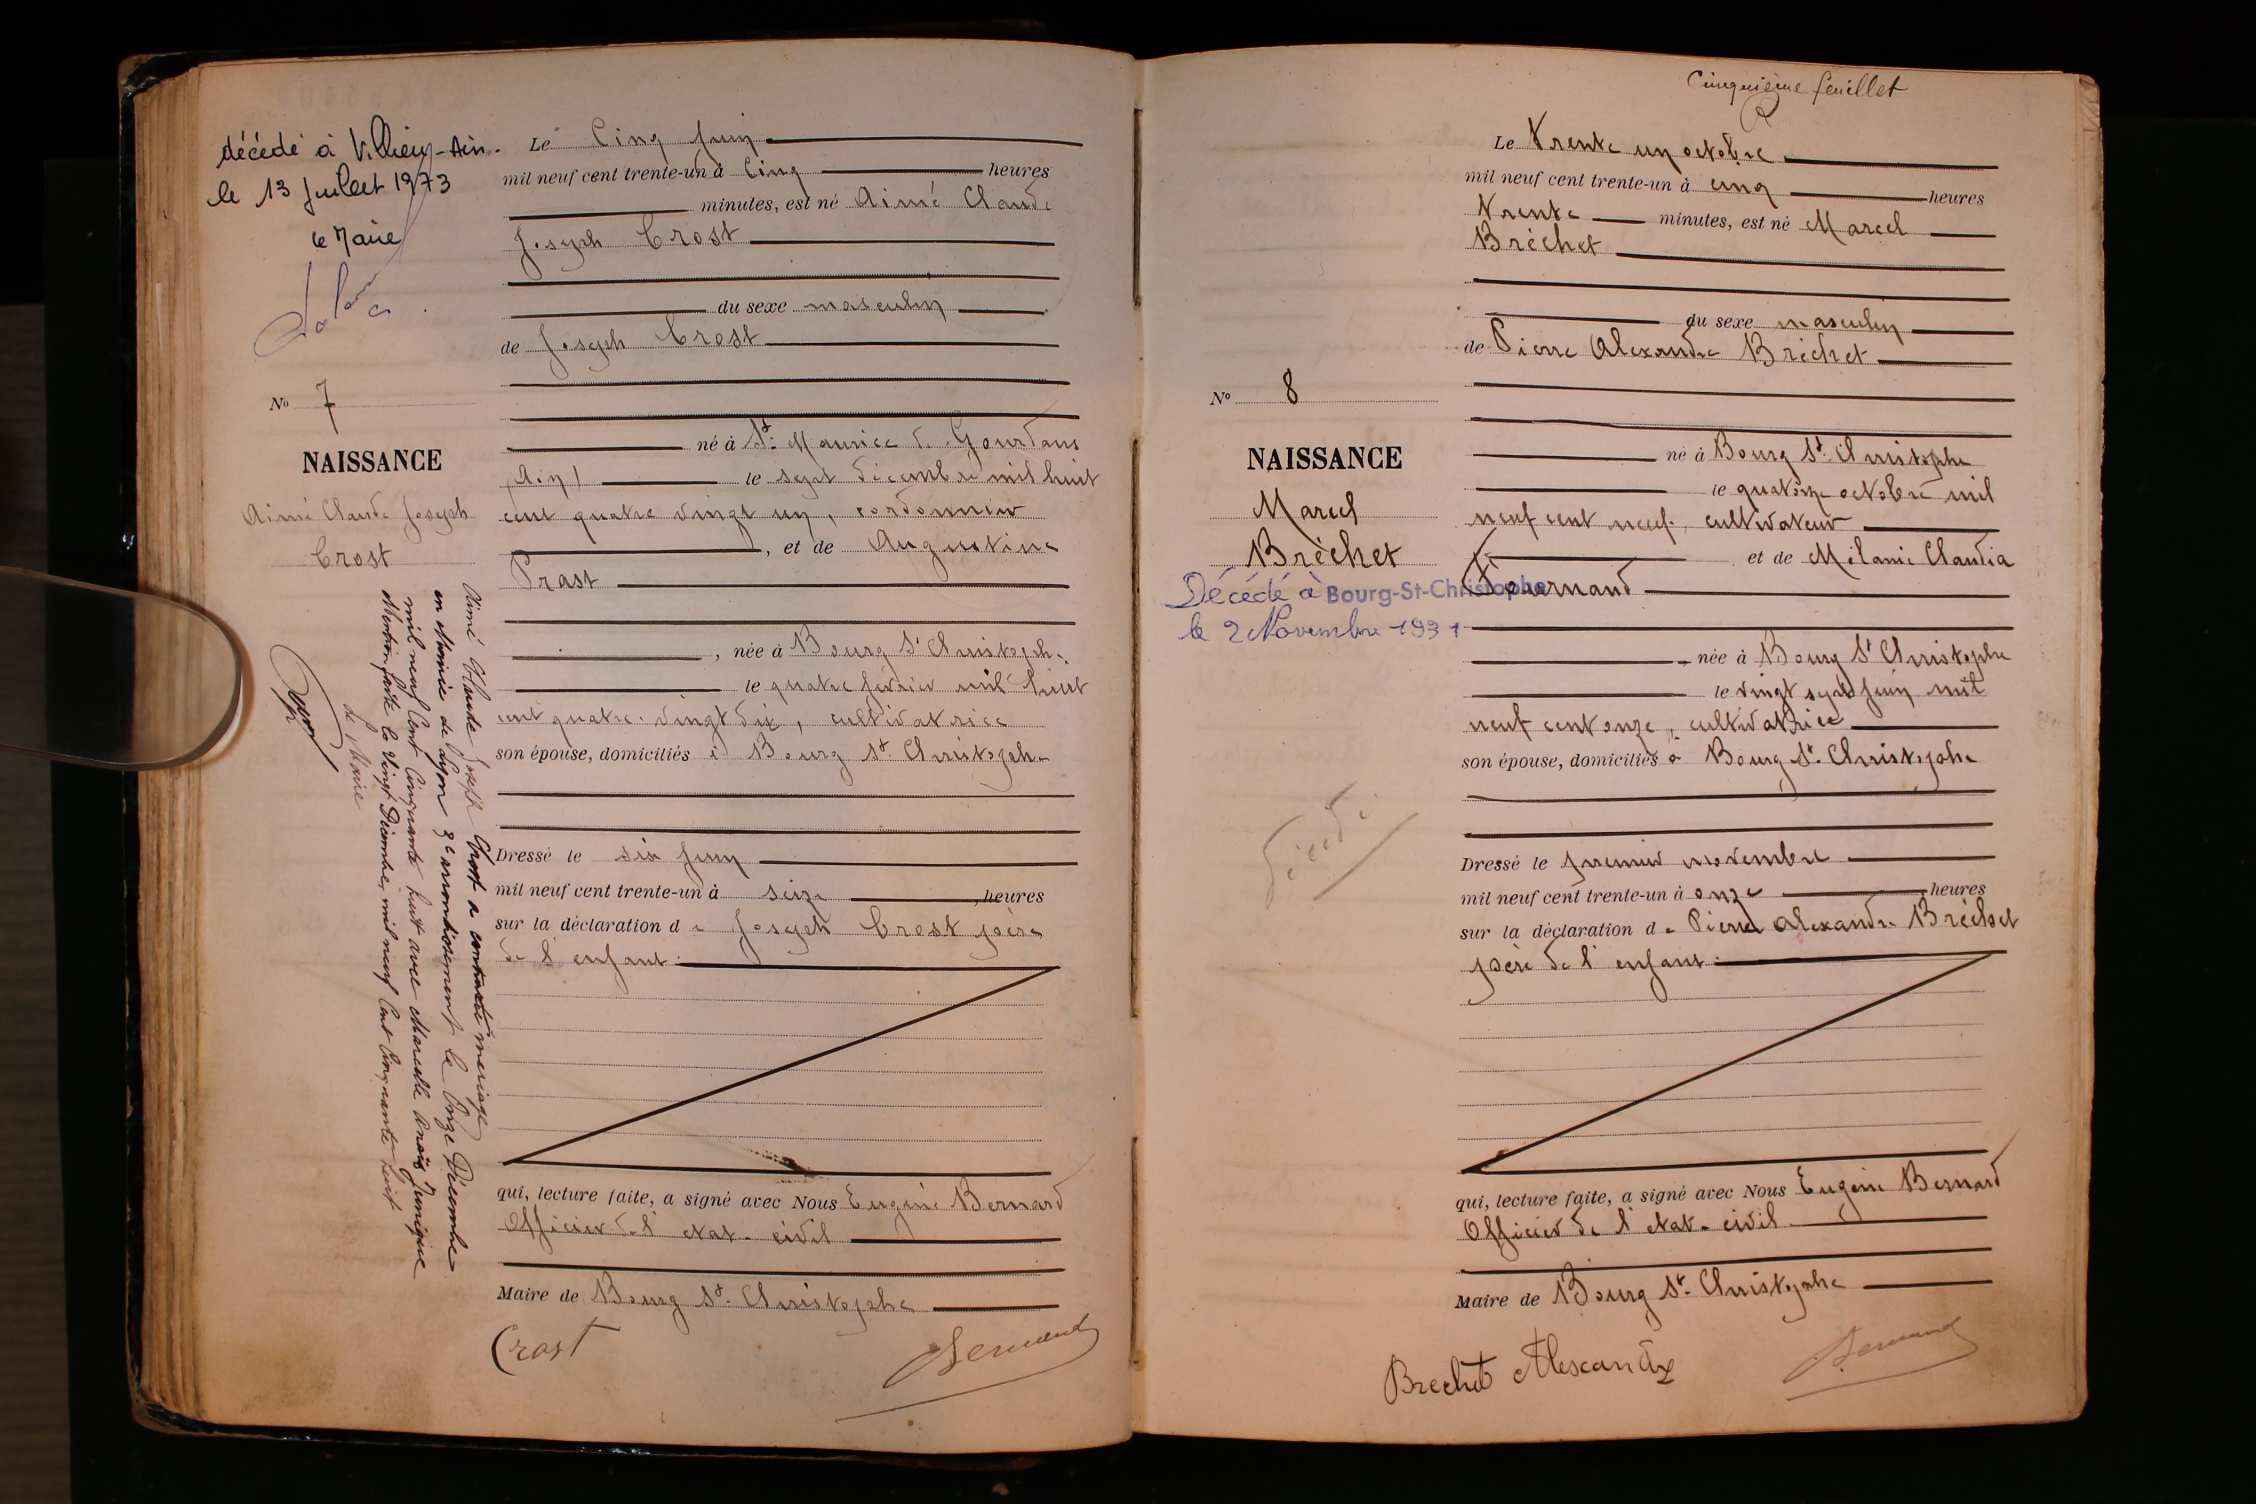 décédé à Villieu-Ain.
le 13 Juillet 1973
le Maire
No 7
NAISSANCE
Aimé Claude Joseph
Crost
Aimé Claude Joseph Crost a contracté mariage
en Mairie de Lyon 3e arrondissement le Onze Décembre
mil neuf Cent Cinquante huit avec Marcelle Anaïs Junique
Mention faite le Vingt Décembre mil neuf Cent Cinquante huit
le Maire
Le Cinq Juin
mil neuf cent trente-un à Cinq heures
minutes, est né Aimé Claude
Joseph Crost
du sexe masculin
de Joseph Crost
né à St. Maurice de Gourdans
(Ain) le sept décembre mil huit
cent quatre vingt un, cordonnier
, et de Augustine
Prast
, née à Bourg St Christophe
le quatre février mil huit
cent quatre-vingt dix, cultivatrice
son épouse, domiciliés à Bourg St. Christophe
Dressé le six Juin
mil neuf cent trente-un à seize , heures
sur la déclaration de Joseph Crost père
de l'enfant.
qui, lecture faite, a signé avec Nous Eugène Bernard
Officier de l'etat-civil
Maire de Bourg St. Christophe
Crost Bernard
Cinquième feuillet
No 8
NAISSANCE
Marcel
Bréchet
Décédé à Bourg-St-Christophe
le 2 Novembre 1931
décédé
Le Trente un octobre
mil neuf cent trente-un à cinq heures
Trente minutes, est né Marcel
Bréchet
du sexe masculin
de Pierre Alexandre Bréchet
né à Bourg St. Christophe
le quatorze octobre mil
neuf cent neuf, cultivateur
et de Mélanie Claudia
Tournand
, née à Bourg St Christophe
le vingt sept Juin mil
neuf cent onze, cultivatrice
son épouse, domiciliés à Bourg St. Christophe
Dressé le premier novembre
mil neuf cent trente-un à onze heures
sur la déclaration de Pierre Alexandre Bréchet
père de l'enfant.
qui, lecture faite, a signé avec Nous Eugène Bernard
Officier de l'etat-civil
Maire de Bourg St. Christophe
Brechet Alexandre Bernard